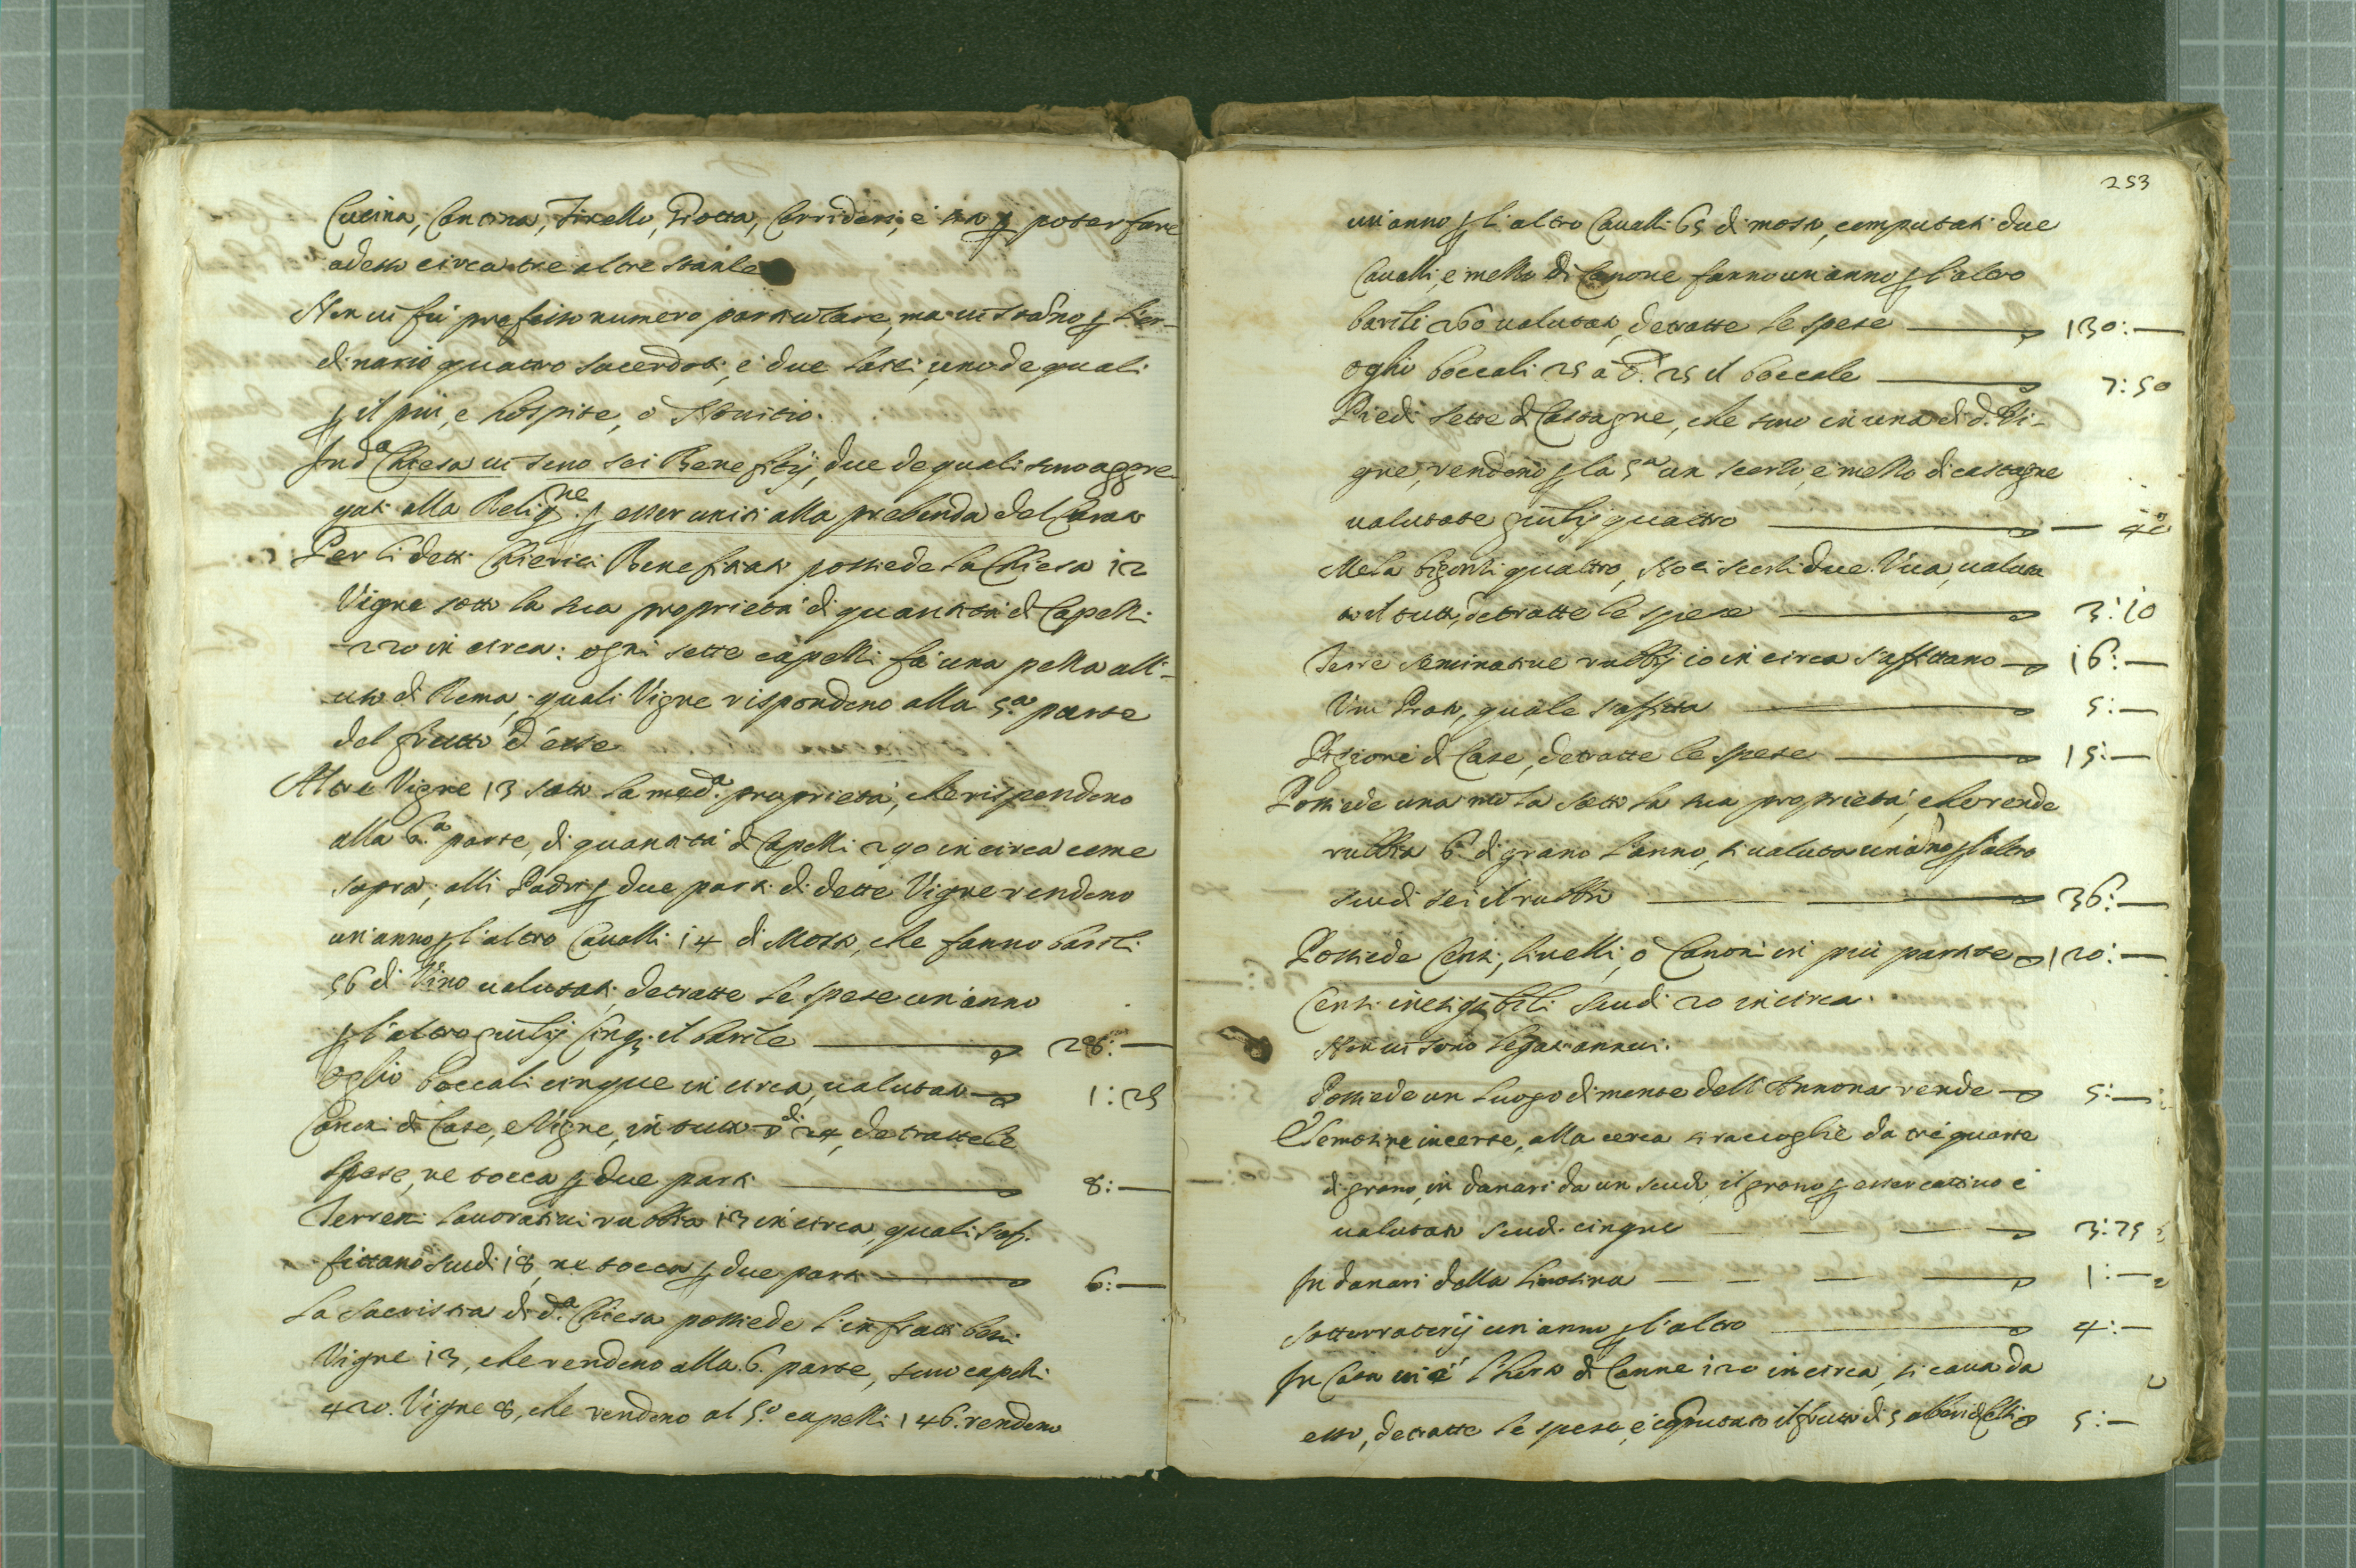 Cucina, Cantina, Tinello, Grotta, Corridori, e poter fare
adesso circa tre altre stanze
Non vi fù prefisso numero particolare, ma vi stanno ꝑ l'or-
dinario quattro sacerdoti, e due laici, uno de quali
ꝑ il più, e hospite, o Novitio.
In dᵃ Chiesa vi sono sei Benefitij, due de quali sono aggre-
gati alla Religⁿᵉ. ꝑ esser uniti alla prebenda del Curato
Per li detti Chierici Benefitiati possiede la Chiesa 12
Vigne sotto la sua proprietà di quantità di Capelli
220 in circa: ogni sette capelli fà una pezza all'-
uso di Roma, quali Vigne rispondono alla 5.ᵃ parte
del frutto d'esse
Altre Vigne 13 sotto la medᵃ. proprietà, che rispondono
alla 6.ᵃ parte, di quantità di Capelli 290 in circa come
sopra, alli Padri ꝑ due parti di dette Vigne rendono
un'anno ꝑ l'altro Cavalli 14 di Mosto, che fanno barili
56 di Vino valutati detratte le spese un'anno
ꝑ l'altro giulij cinqꝫ. il barile 28:—
Oglio boccali cinque in circa, valutati 1:25
Canoni di Case, e Vigne, in tutto 24, detratte le
spese, ne tocca ꝑ due parti 8:—
Terreni lavorativi rubbia 13 in circa, quali s'af-
fittano scudi 18, ne tocca ꝑ due parti 6:—
La Sacristia di d.ᵃ Chiesa possiede l'infratti beni
Vigne 13, che rendono alla 6. parte, sono capelli
420. Vigne 8, che rendono al 5.º capelli 146. rendono
253
un'anno ꝑ l'altro Cavalli 65 di mosto, computati due
Cavalli, e mezzo di Canone fanno un'anno ꝑ l'altro
barili 260 valutati, detratte le spese 130:—
Oglio boccali 25 à 25 il boccale 7:50
Piedi sette di Castagne, che sono in una di d. Vi-
gne, rendono ꝑ la 5ᵃ un scorzo, e mezzo di castagne
valutate giulij quattro — 40
Mela bigonzi quattro, Noci scorzi due. Uva, valuta-
to il tutto, detratte le spese 3:10
Terre seminative rubbij 10 in circa s'affittano 16:—
Un Prato, quale s'affitta 5:—
Pigioni di Case, detratte le spese 15:—
Possiede una mola sotto la sua proprietà, che rende
rubbia 6 di grano l'anno, si valuta un anno ꝑ l'altro
scudi sei il rubbio 36:—
Possiede Censi, livelli, o Canoni in più partite 120:—
Censi inesigibili scudi 20 in circa.
Non vi sono legati annui.
Possiede un Luogo di monte dell'Annona rende 5:—
Elemosine incerte, alla cerca si raccoglie da tre quarte
di grano, in danari da un scudo, il grano ꝑ esser cattivo è
valutato scudi cinque 3:25
In danari dalla limosina 1:—
Sotterratorij un'anno ꝑ l'altro 4:—
In Casa vi è l'horto di Canne 120 in circa, si cava da
esso, detratte le spese, e computato il frutto di 5 alberi di Celsi 5:—